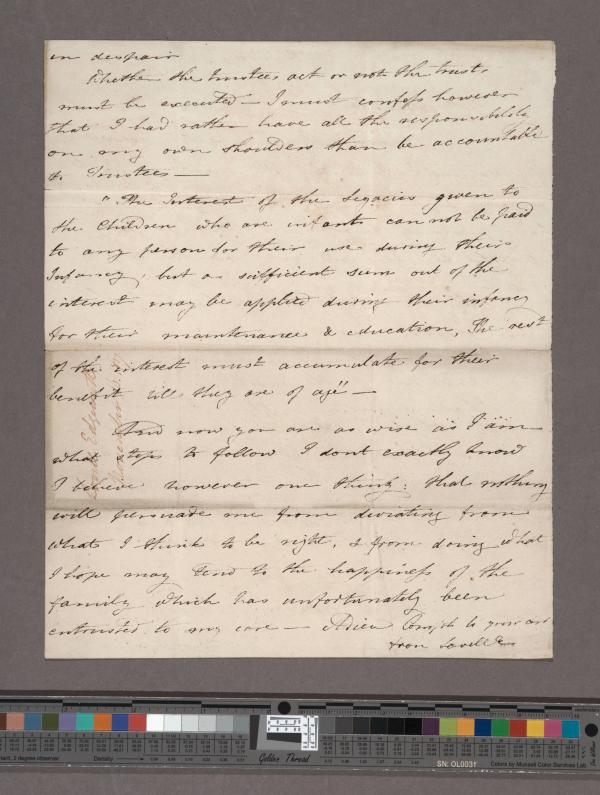 in despair
Whether the trustees act or not the trusts
must be executed — I must confess however
that I had rather have all the responsibility
on my own shoulders than be accountable
to Trustees —
"The Interest of the Legacies given to
the Children who are infants can not be paid
to any person for their use during their
Infancy, but a sufficient sum out of the
interest may be applied during their infancy
for their maintenance & education, The rest
of the interest must accumulate for their
benefit till they are of age" —
And now you are as wise as I am
what steps to follow I dont exactly know
I believe however one thing: that nothing
will persuade me from deviating from
what I think to be right, & from doing what
I hope may tend to the happiness of the
family which has unfortunately been
entrusted to my care — Adieu
from Lovell
Golden Thread
SN: OL0031
Colors by Munsell Color Services Lab
Density